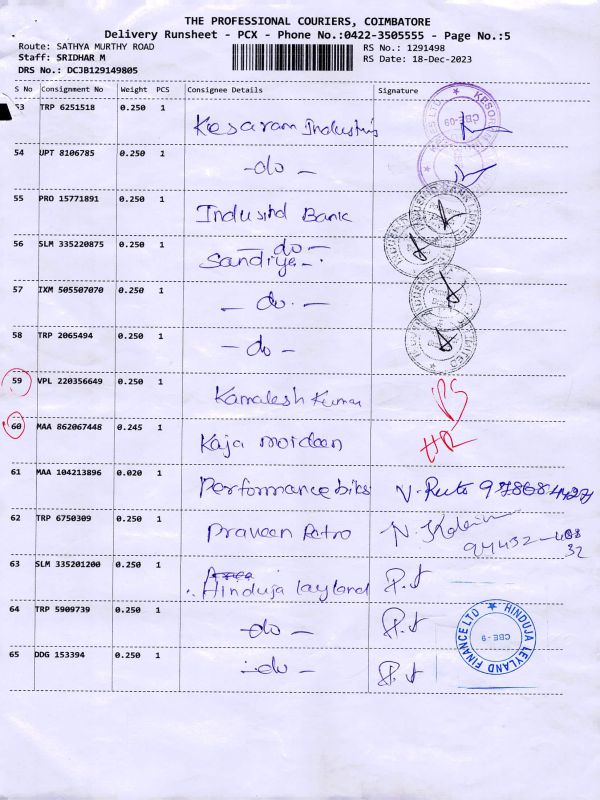 THE PROFESSIONAL COURIERS, COIMBATORE
Delivery Runsheet - PCX - Phone No.:0422-3505555 - Page No.:5
Route: SATHYA MURTHY ROAD RS No.: 1291498
Staff: SRIDHAR M RS Date: 18-Dec-2023
DRS No.: DCJB129149805
S No Consignment No Weight PCS Consignee Details Signature
53 TRP 6251518 0.250 1
Kesaram Industris
54 UPT 8106785 0.250 1
- do -
55 PRO 15771891 0.250 1
Indusind Bank
56 SLM 335220875 0.250 1
- do -
Sandiya - .
57 IXM 505507070 0.250 1
- do. -
58 TRP 2065494 0.250 1
- do -
59 VPL 220356649 0.250 1
Kamalesh Kumar
60 MAA 862067448 0.245 1
Kaja moideen HR
61 MAA 104213896 0.020 1
Performance biks
62 TRP 6750309 0.250 1
Praveen Retro
63 SLM 335201200 0.250 1
Hinduja layland
64 TRP 5909739 0.250 1
- do -
HINDUJA LEYLAND FINANCE LTD
CBE-9
65 DDG 153394 0.250 1
- do -